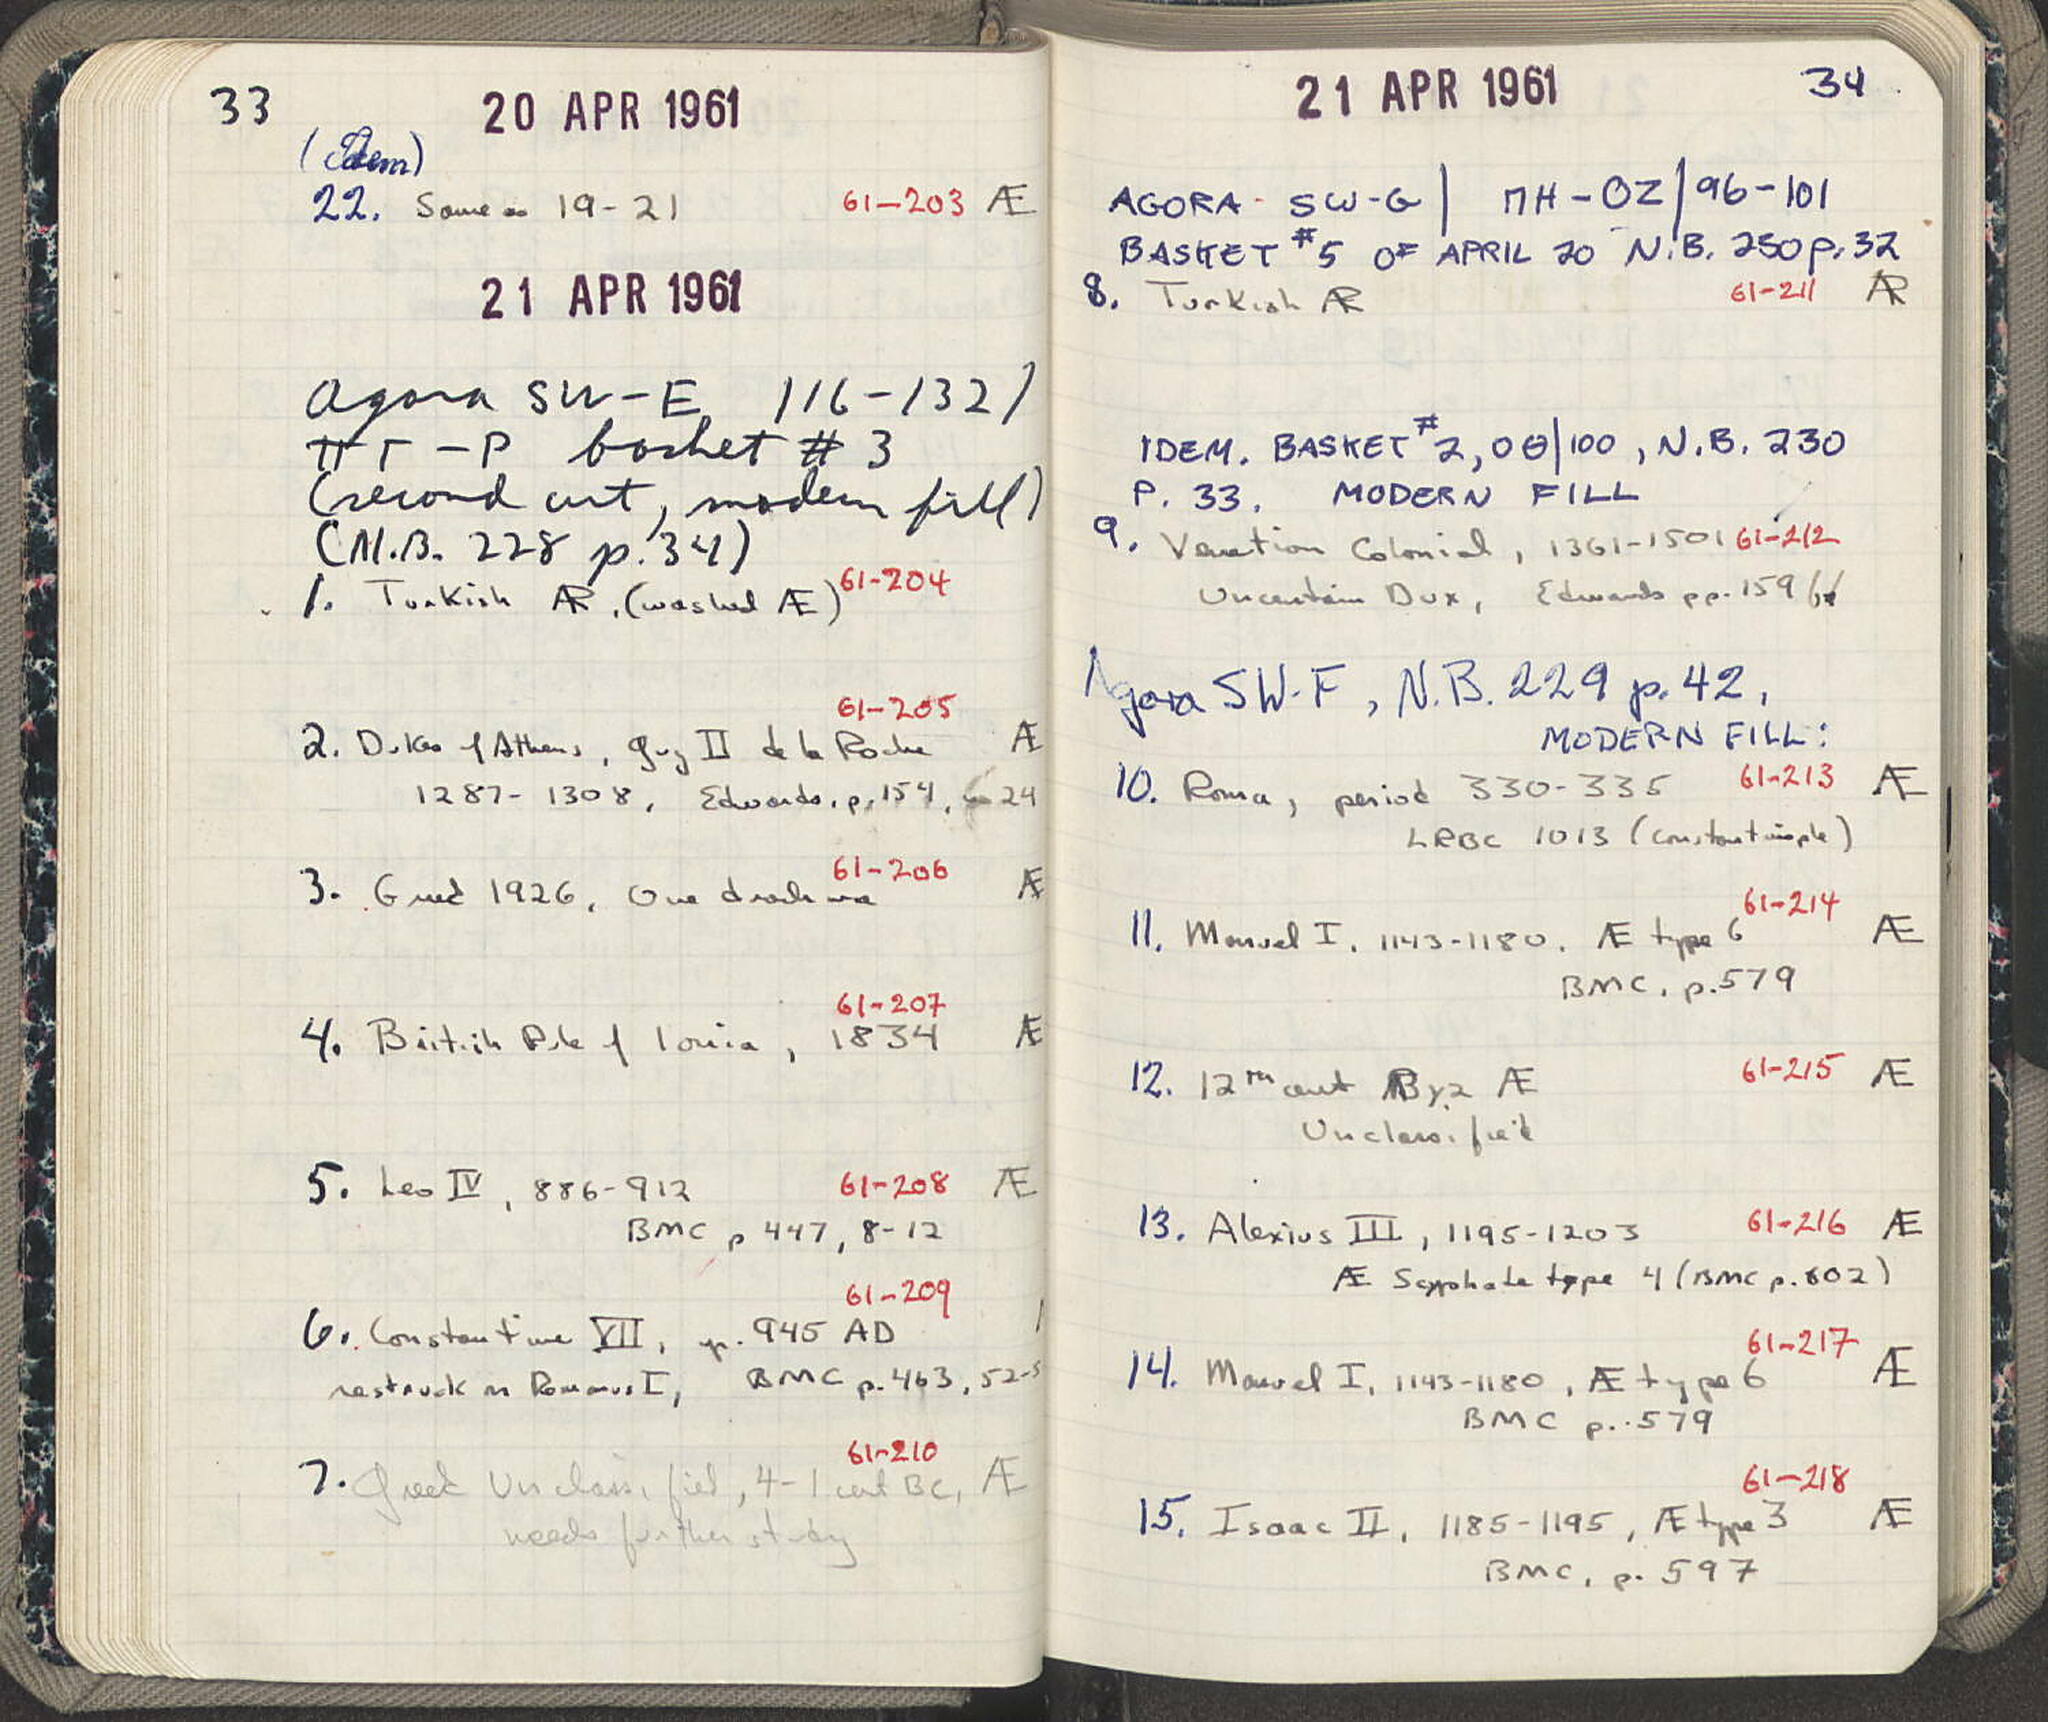 33
20 APR 1961
(Idem)
22. Same as 19-21 61-203 Æ
21 APR 1961
Agora SW-E, 116-132/
ΠΓ-Ρ basket #3
(second cut, modern fill)
(N.B. 228 p.34)
1. Turkish AR, (washed Æ) 61-204
61-205
2. Dukes of Athens, Guy II de la Roche Æ
1287-1308, Edwards, p. 154, 24
61-206
3. Greek 1926, One drachma Æ
61-207
4. British Rule of Ionia, 1834 Æ
5. Leo IV, 886-912 61-208 Æ
BMC p 447, 8-12
61-209
6. Constantine VII, 945 AD
restruck on Romanus I, BMC p. 463, 52-5
61-210
7. Greek Unclassified, 4-1 cent BC, Æ
needs further study
21 APR 1961 34
AGORA - SW-G | ΠΗ-ΟΖ/96-101
BASKET #5 OF APRIL 20 N.B. 230 p. 32
8. Turkish AR 61-211 AR
IDEM. BASKET #2, ΟΘ/100, N.B. 230
P. 33. MODERN FILL
9. Venetian Colonial, 1361-1501 61-212
Uncertain Dux, Edwards pp. 159
Agora SW-F, N.B. 229 p. 42,
MODERN FILL:
10. Roma, period 330-335 61-213 Æ
LRBC 1013 (Constantinople)
61-214
11. Manuel I, 1143-1180. Æ type 6 Æ
BMC, p. 579
12. 12th cent Byz Æ 61-215 Æ
Unclassified
13. Alexius III, 1195-1203 61-216 Æ
Æ Scyphate type 4 (BMC p. 602)
61-217
14. Manuel I, 1143-1180, Æ type 6 Æ
BMC p. 579
61-218
15. Isaac II, 1185-1195, Æ type 3 Æ
BMC, p. 597